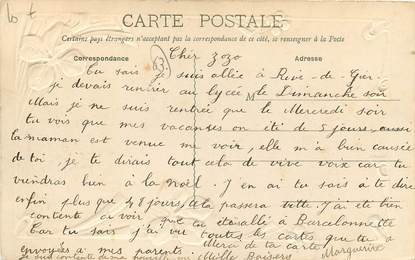 CARTE POSTALE
Certains pays étrangers n'acceptant pas la correspondance de ce côté, se renseigner à la Poste
Correspondance
Adresse
Cher Zozo
Tu sais je suis allée à Rive-de-Gier
je devais rentrer au lycée le Dimanche soir
Mais je ne suis rentrée que le Mercredi soir
tu vois que mes vacances on été de 5 jours, aussi
la maman est venue me voir, elle m'a bien causée
de toi, je te dirais tout cela de vive voix car tu
viendras bien à la noël. J'en ai tu sais à te dire
enfin plus que 48 jours, cela passera vite. J'ai été bien
contente a voir que tu étais allé à Barcelonnette
Car tu sais j'ai vu toutes les cartes que tu a
envoyées a mes parents. Merci de ta carte
Marguerite
Mille Baisers